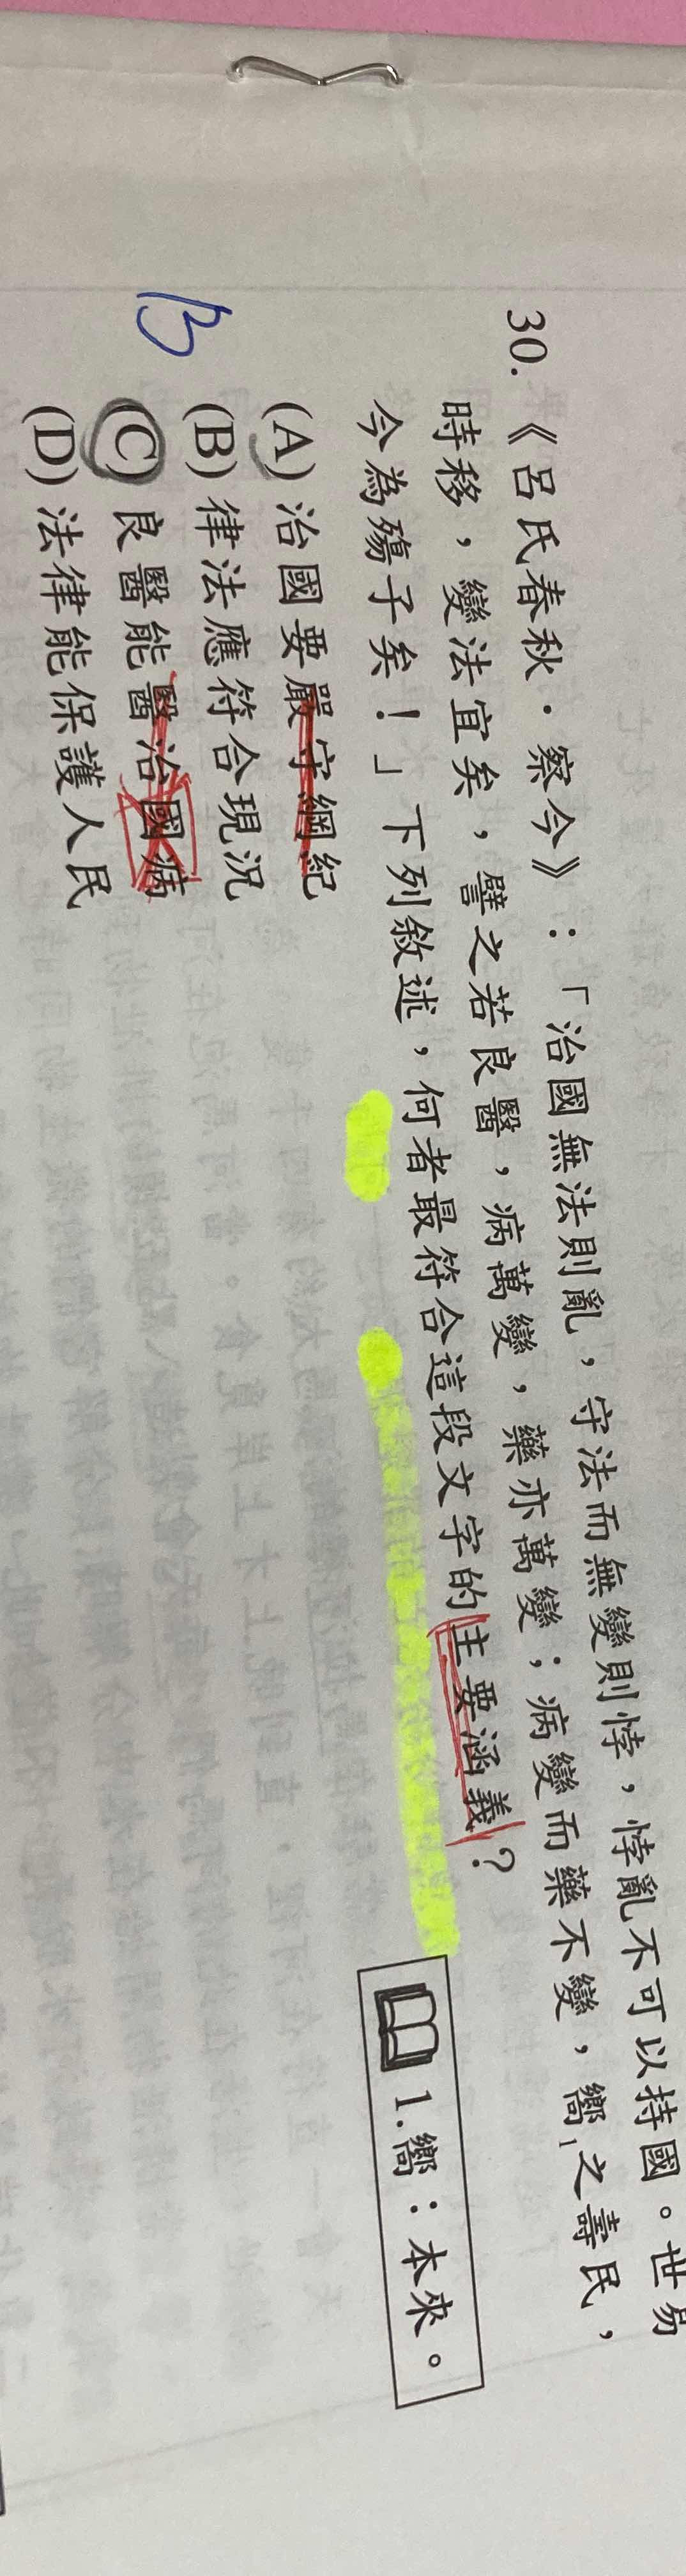 30. 《呂氏春秋・察今》：「治國無法則亂，守法而無變則悖，悖亂不可以持國。世易
時移，變法宜矣，譬之若良醫，病萬變，藥亦萬變；病變而藥不變，嚮1之壽民，
今為殤子矣！」下列敘述，何者最符合這段文字的主要涵義？
(A)治國要嚴守綱紀
(B)律法應符合現況
(C)良醫能醫治國病
(D)法律能保護人民
B
1.嚮：本來。